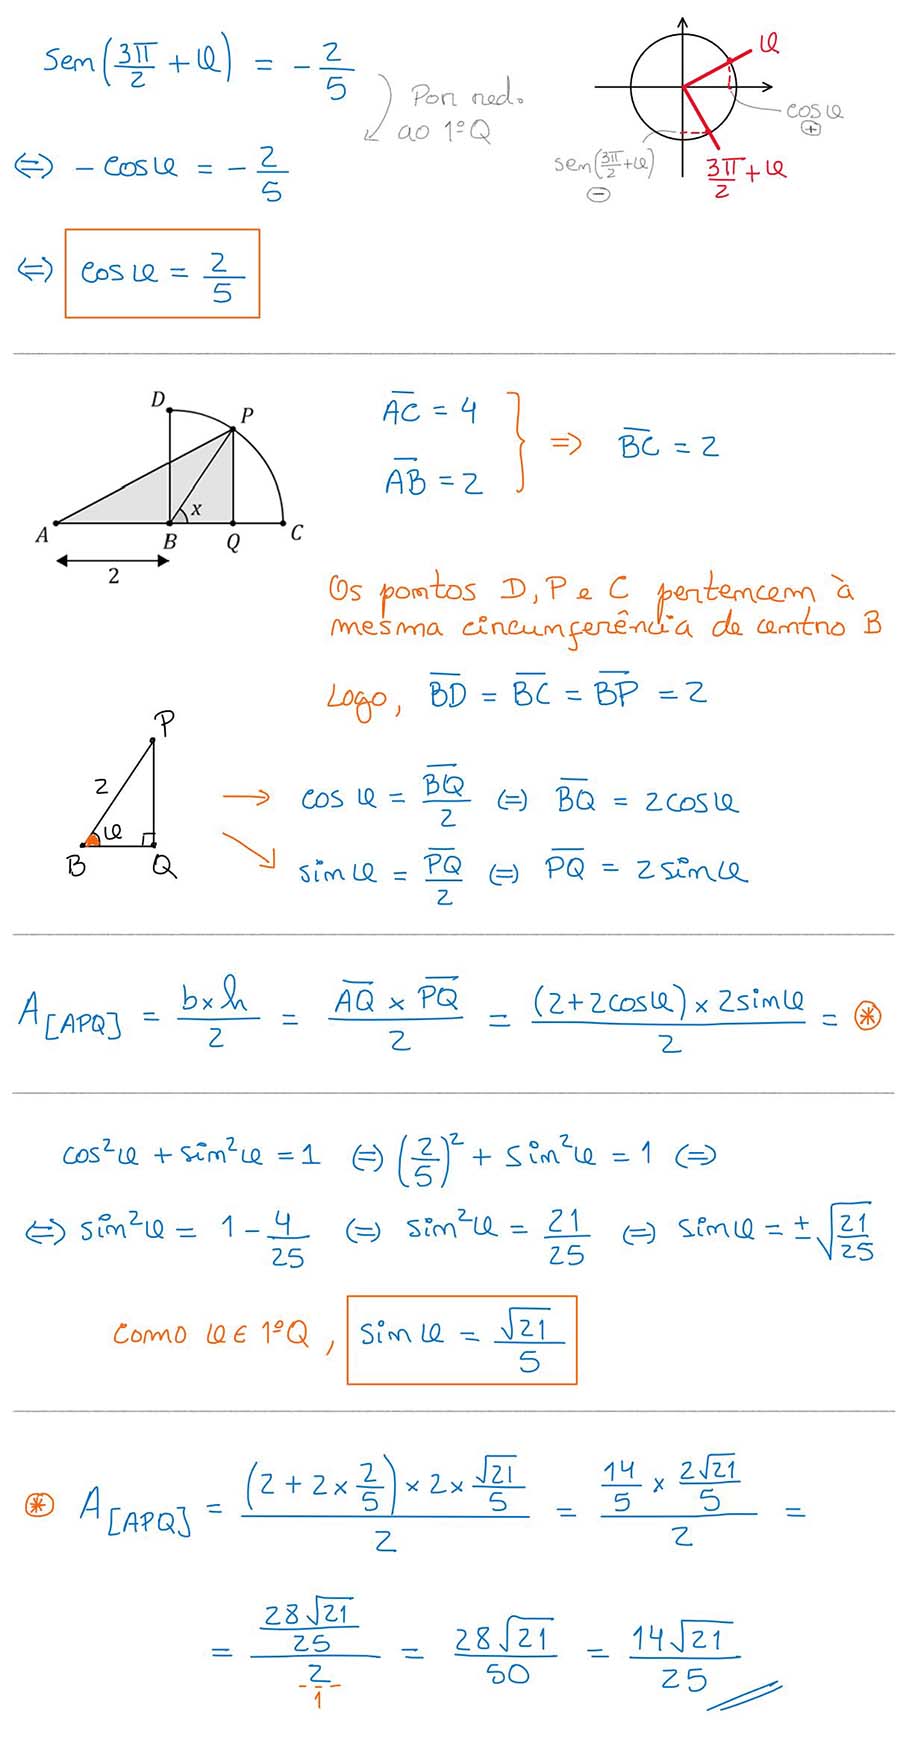 sen(3π/2 + φ) = -2/5
Por red. ao 1ºQ
⇔ -cosφ = -2/5
⇔ cosφ = 2/5
φ
cosφ
+
sen(3π/2+φ)
-
3π/2+φ
D
P
x
A
B
Q
C
2
A̅C̅ = 4
A̅B̅ = 2
⇒ B̅C̅ = 2
Os pontos D, P e C pertencem à
mesma circunferência de centro B
Logo, B̅D̅ = B̅C̅ = B̅P̅ = 2
P
2
φ
B
Q
→ cosφ = B̅Q̅/2 ⇔ B̅Q̅ = 2cosφ
↘ sinφ = P̅Q̅/2 ⇔ P̅Q̅ = 2sinφ
A[APQ] = b×h/2 = A̅Q̅ × P̅Q̅/2 = (2+2cosφ) × 2sinφ/2 = ⊛
cos²φ + sin²φ = 1 ⇔ (2/5)² + sin²φ = 1 ⇔
⇔ sin²φ = 1 - 4/25 ⇔ sin²φ = 21/25 ⇔ sinφ = ±√(21/25)
Como φ ∈ 1ºQ, sinφ = √21/5
⊛ A[APQ] = (2 + 2 × 2/5) × 2 × √21/5 / 2 = 14/5 × 2√21/5 / 2 =
= 28√21/25 / 2/1 = 28√21/50 = 14√21/25